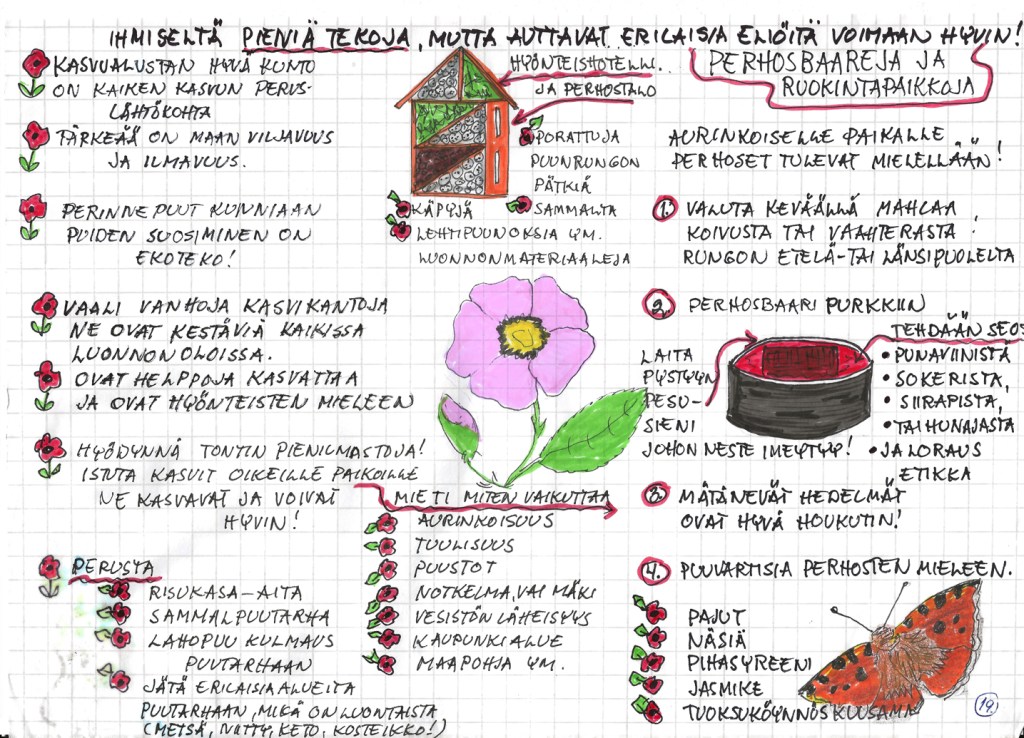 IHMISELTÄ PIENIÄ TEKOJA, MUTTA AUTTAVAT ERILAISIA ELIÖITÄ VOIMAAN HYVIN!
KASVUALUSTAN HYVÄ KUNTO
ON KAIKEN KASVUN PERUS-
LÄHTÖKOHTA
TÄRKEÄÄ ON MAAN VILJAVUUS
JA ILMAVUUS.
PERINNEPUUT KUNNIAAN
PUIDEN SUOSIMINEN ON
EKOTEKO!
VAALI VANHOJA KASVIKANTOJA
NE OVAT KESTÄVIÄ KAIKISSA
LUONNONOLOISSA.
OVAT HELPPOJA KASVATTAA
JA OVAT HYÖNTEISTEN MIELEEN
HYÖDYNNÄ TONTIN PIENILMASTOJA!
ISTUTA KASVIT OIKEILLE PAIKOILLE
NE KASVAVAT JA VOIVAT
HYVIN!
PERUSTA
RISUKASA-AITA
SAMMALPUUTARHA
LAHOPUU KULMAUS
PUUTARHAAN
JÄTÄ ERILAISIA ALUEITA
PUUTARHAAN, MIKÄ ON LUONTAISTA
(METSÄ, NIITTY, KETO, KOSTEIKKO!)
HYÖNTEISHOTELLI.
JA PERHOSTALO
PORATTUJA
PUUNRUNGON
PÄTKIÄ
KÄPYJÄ
SAMMALTA
LEHTIPUUNOKSIA YM.
LUONNONMATERIAALEJA
MIETI MITEN VAIKUTTAA
AURINKOISUUS
TUULISUUS
PUUSTOT
NOTKELMA, VAI MÄKI
VESISTÖN LÄHEISYYS
KAUPUNKIALUE
MAAPOHJA YM.
PERHOSBAAREJA JA
RUOKINTAPAIKKOJA
AURINKOISELLE PAIKALLE
PERHOSET TULEVAT MIELELLÄÄN!
1. VALUTA KEVÄÄLLÄ MAHLAA
KOIVUSTA TAI VAAHTERASTA
RUNGON ETELÄ- TAI LÄNSIPUOLELTA
2. PERHOSBAARI PURKKIIN
TEHDÄÄN SEOS
• PUNAVIINISTA
• SOKERISTA,
• SIIRAPISTA,
• TAI HUNAJASTA
• JA LORAUS
ETIKKA
LAITA
PYSTYYN
PESU-
SIENI
JOHON NESTE IMEYTYY!
3. MÄTÄNEVÄT HEDELMÄT
OVAT HYVÄ HOUKUTIN!
4. PUUVARTISIA PERHOSTEN MIELEEN.
PAJUT
NÄSIÄ
PIHASYREENI
JASMIKE
TUOKSUKÖYNNÖSKUUSAMA
19.